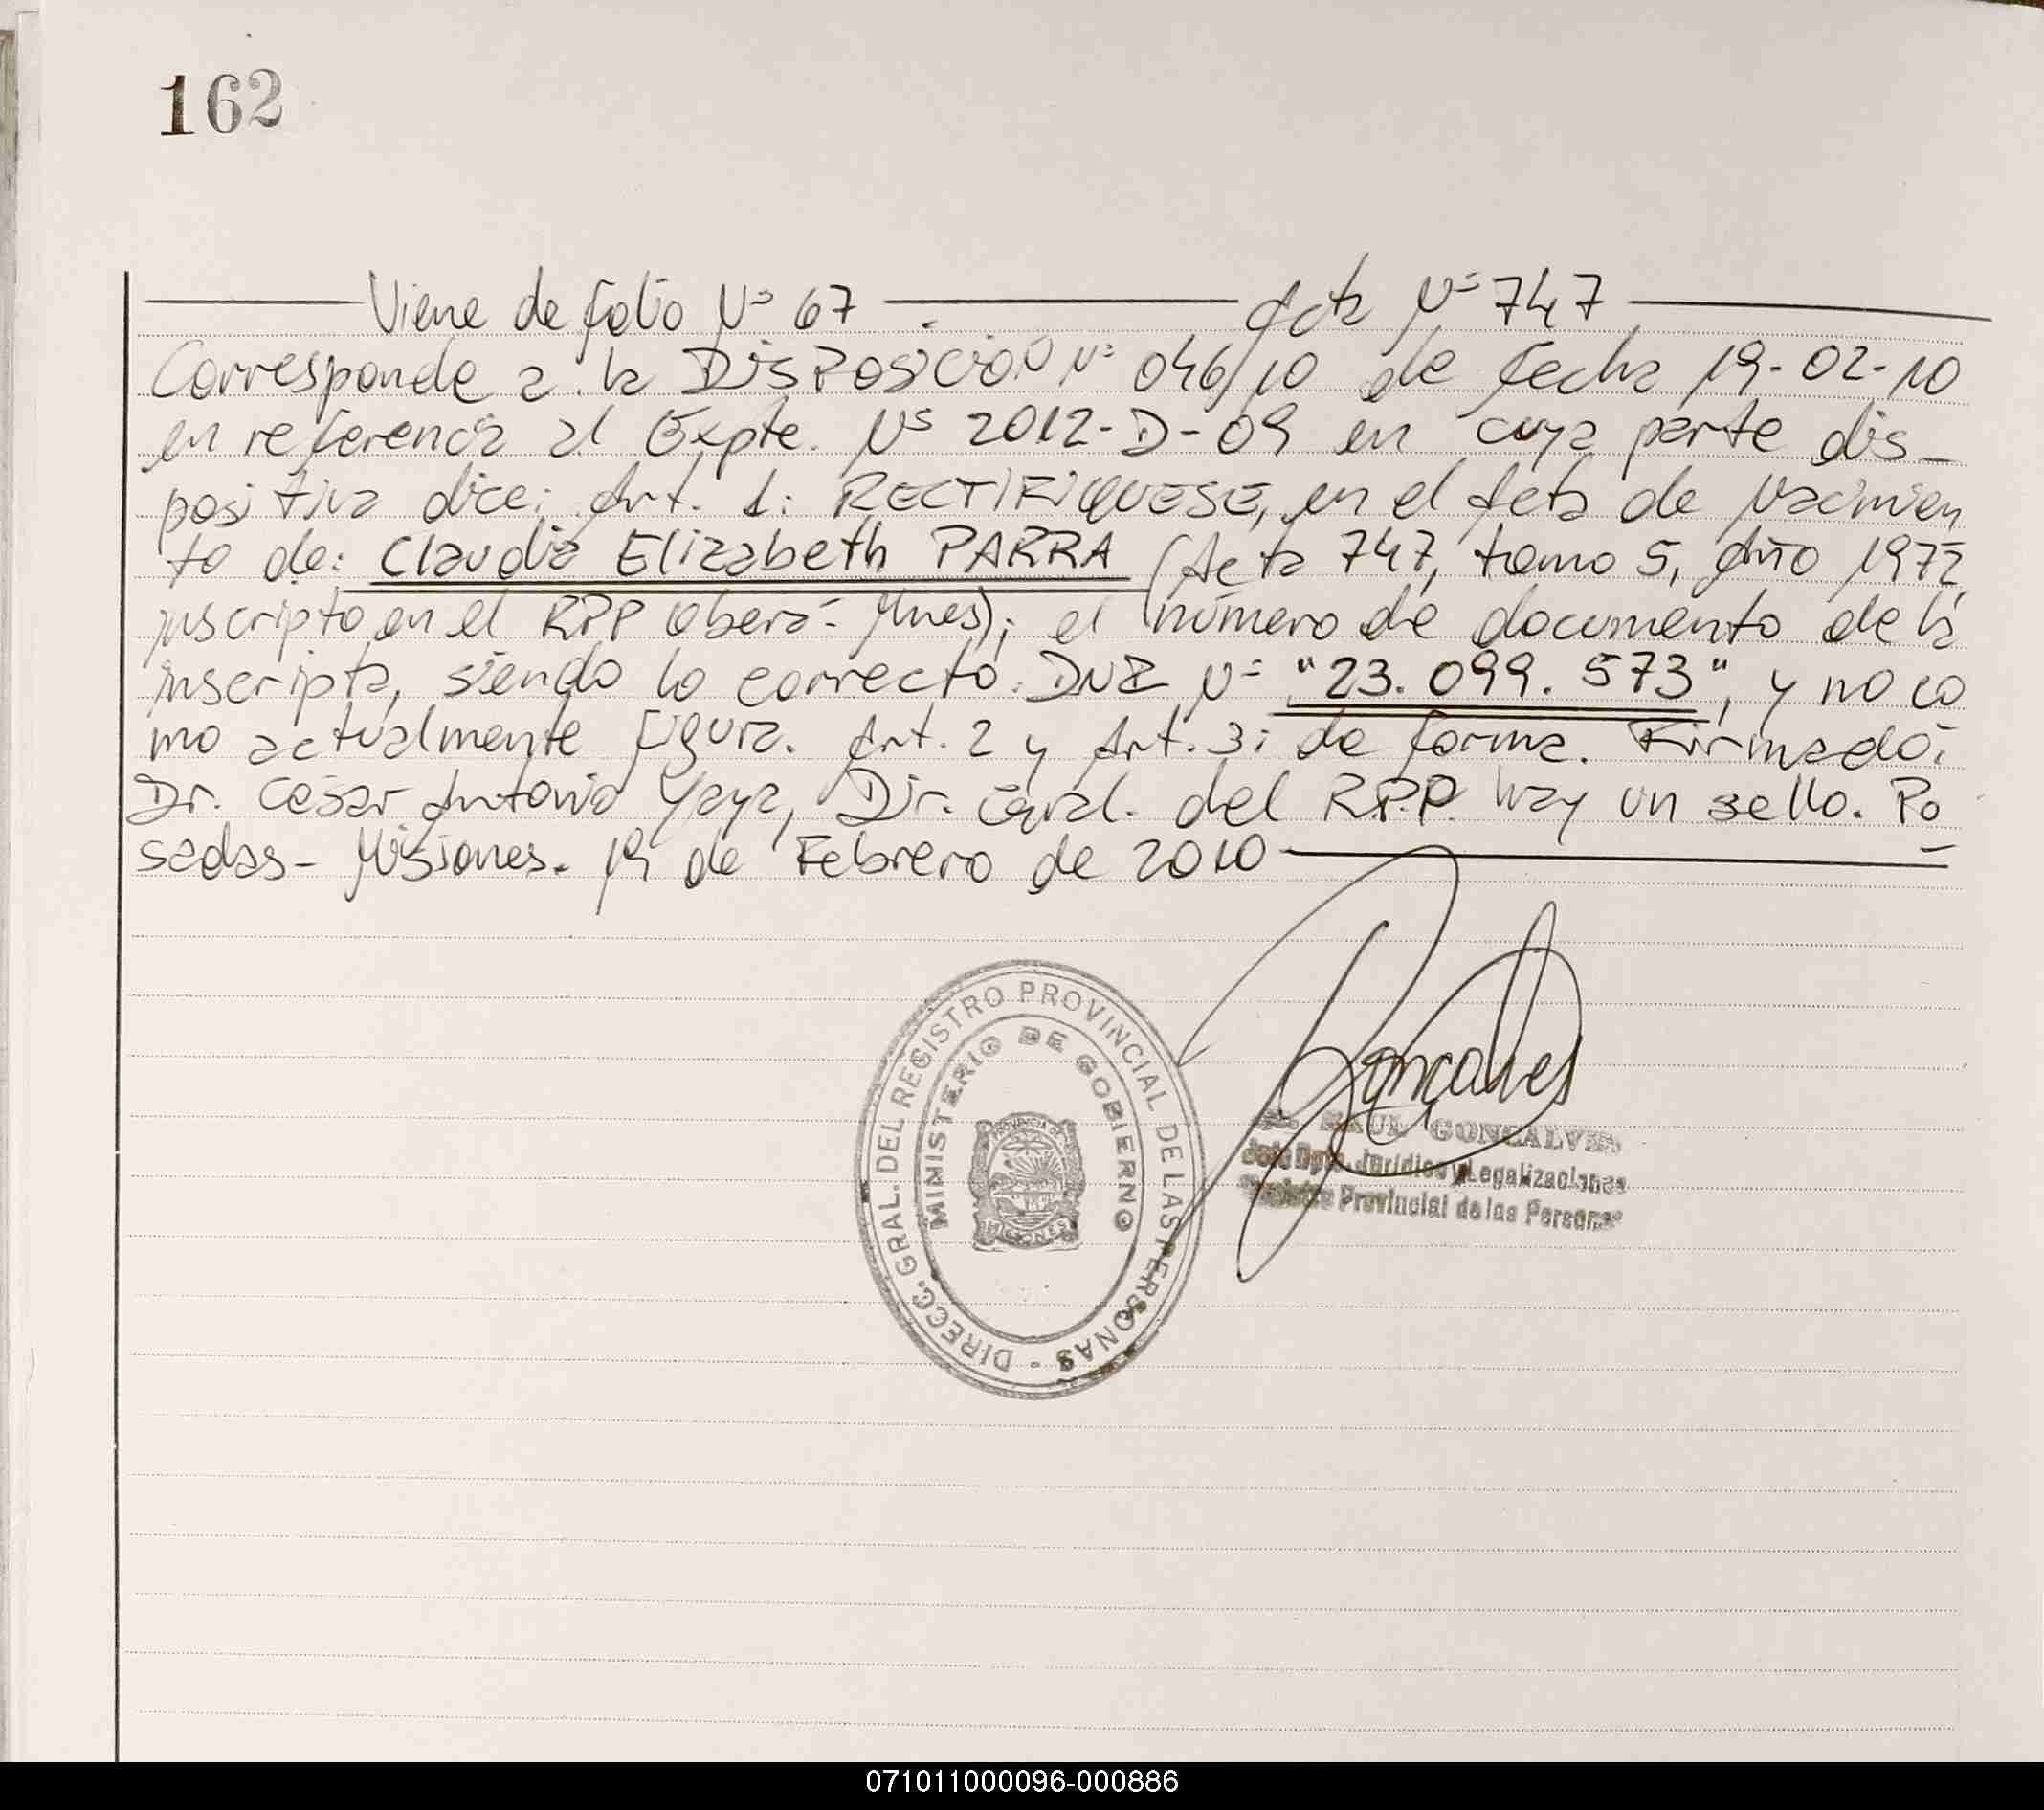 162
Viene de folio Nº 67 . Acta Nº 747
Corresponde a la DISPOSICION Nº 046/10 de fecha 19-02-10
en referencia al Expte. Nº 2012-D-09 en cuya parte dis-
positiva dice: Art. 1: RECTIFIQUESE, en el Acta de Nacimien
to de: Claudia Elizabeth PARRA (Acta 747, tomo 5, Año 1972,
inscripto en el RPP Oberá- Mnes); el número de documento de la
inscripta, siendo lo correcto: DNI Nº "23.099.573", y no co
mo actualmente figura. Art. 2 y Art. 3: de forma. Firmado:
Dr. César Antonio Yaya, Dir. Gral. del R.P.P. hay un sello. Po
sadas- Misiones. 19 de Febrero de 2010
DIRECC. GRAL. DEL REGISTRO PROVINCIAL DE LAS PERSONAS -
MINISTERIO DE GOBIERNO
PROVINCIA DE
MISIONES
Gonçalves
RAUL GONCALVES
Jefe Dpto. Jurídico y Legalizaciones
Registro Provincial de las Personas
071011000096-000886